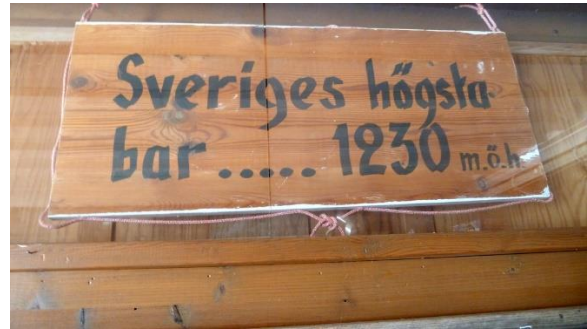 Sveriges högsta
bar ..... 1230 m.ö.h.